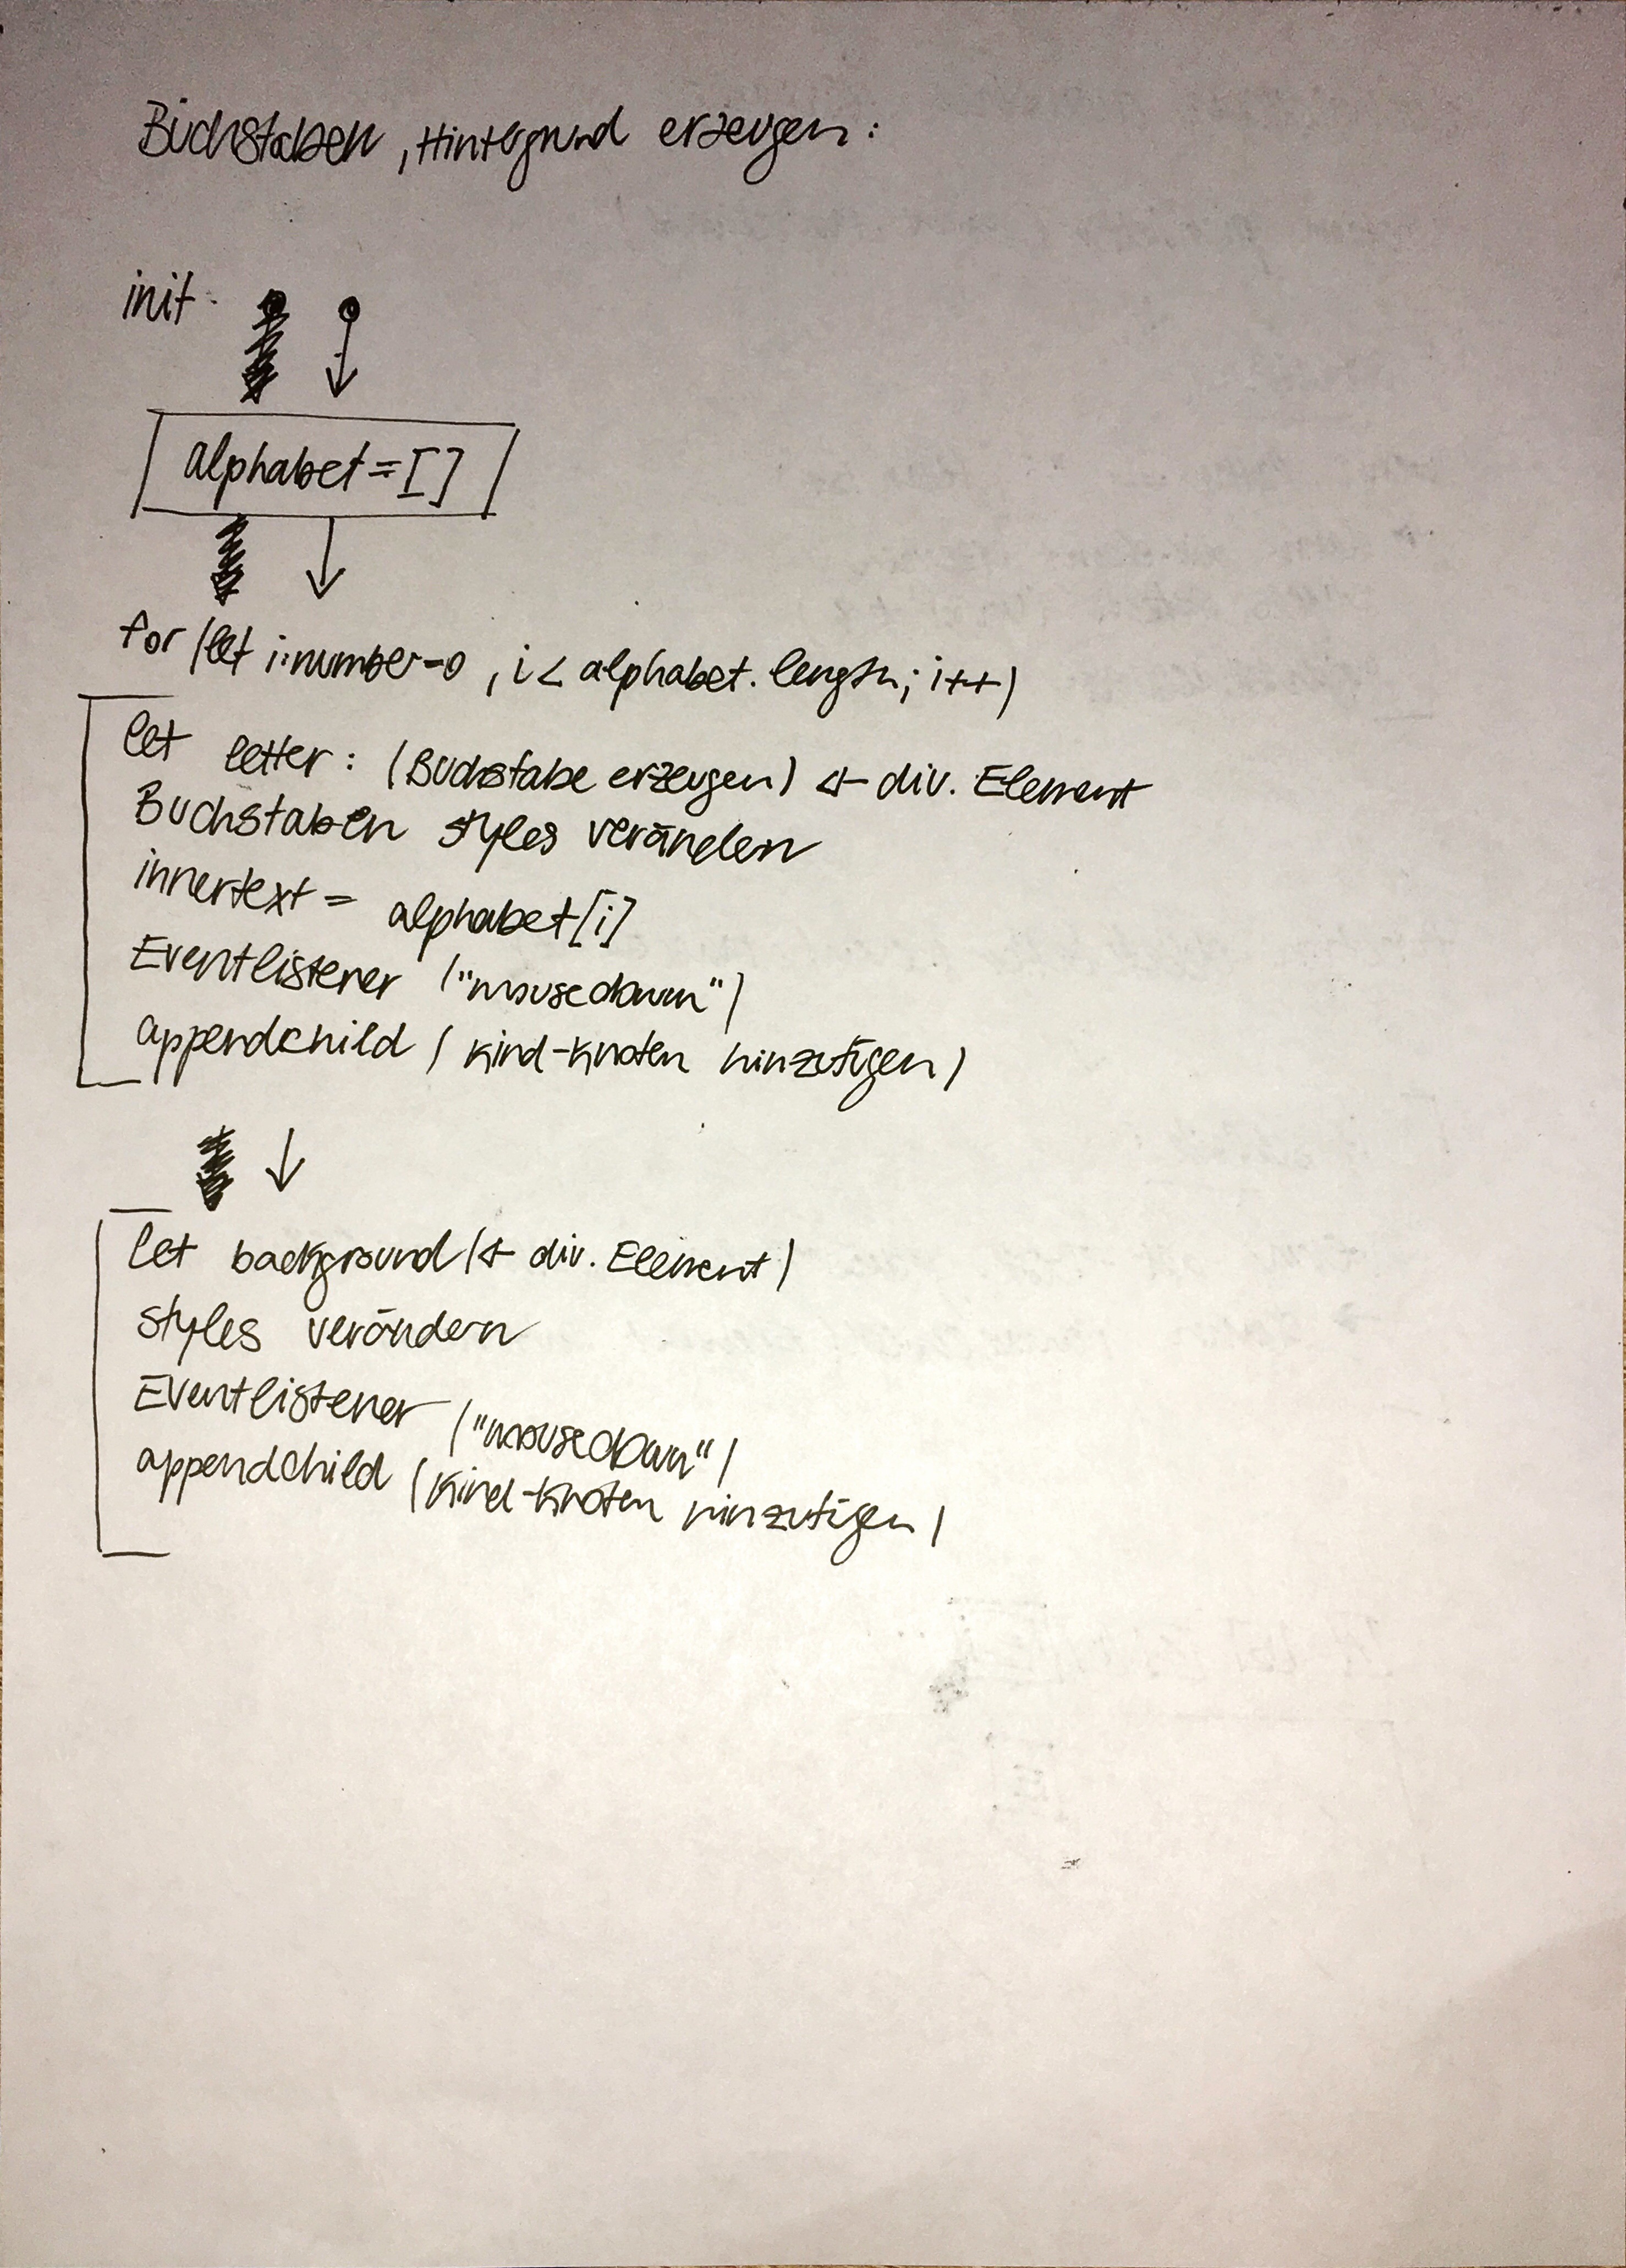 Buchstaben, Hintergrund erzeugen:
init
alphabet=[]
for (let i:number=0, i< alphabet.length; i++)
let letter: (Buchstabe erzeugen) ← div. Element
Buchstaben styles verändern
innertext = alphabet[i]
Eventlistener ("mousedown")
appendchild (Kind-Knoten hinzufügen)
let background (← div. Element)
styles verändern
Eventlistener ("mousedown")
appendchild (Kind-Knoten hinzufügen)